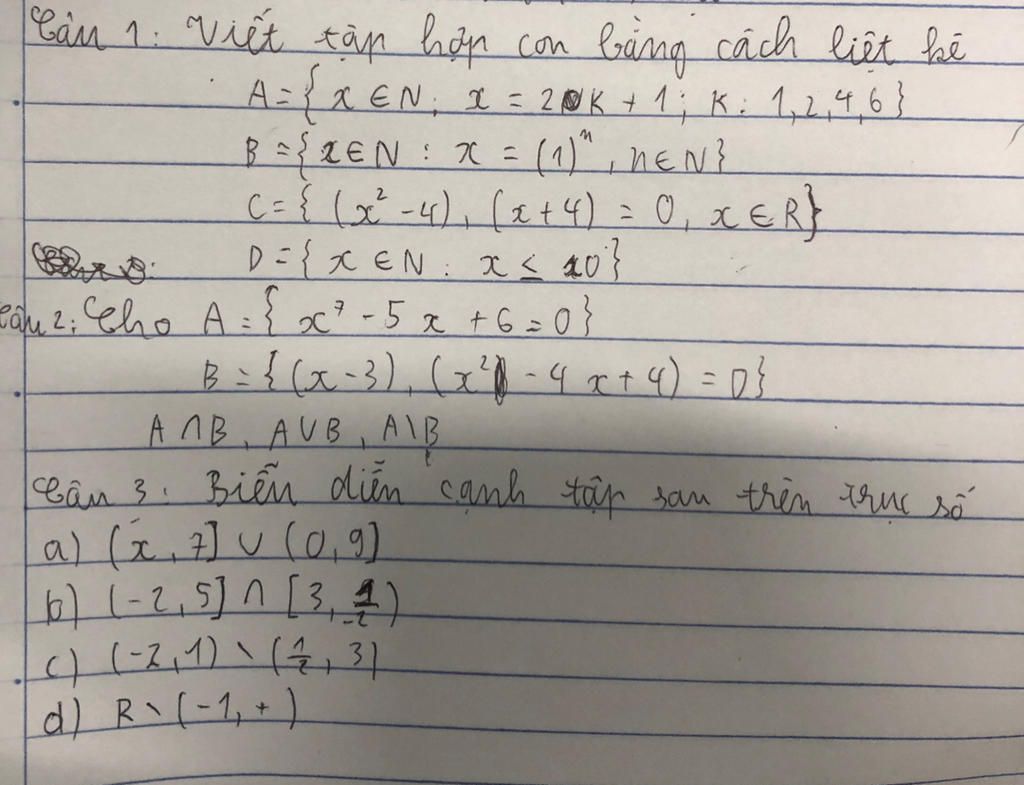 Câu 1: Viết tập hợp con bằng cách liệt kê
A = { x ∈ N : x = 2K + 1 ; K : 1, 2, 4, 6 }
B = { x ∈ N : x = (1)ⁿ , n ∈ N }
C = { (x² - 4) , (x + 4) = 0, x ∈ R }
D = { x ∈ N : x ≤ 10 }
Câu 2: Cho A = { x⁷ - 5x + 6 = 0 }
B = { (x - 3) , (x² - 4x + 4) = 0 }
A ∩ B , A ∪ B , A \ B
Câu 3 : Biễn diễn cạnh tập sau trên trục số
a) (x , 7] ∪ (0, 9]
b) (-2, 5] ∩ [3, )
c) (-2, 1) \ (1/2 , 3)
d) R \ (-1, + )